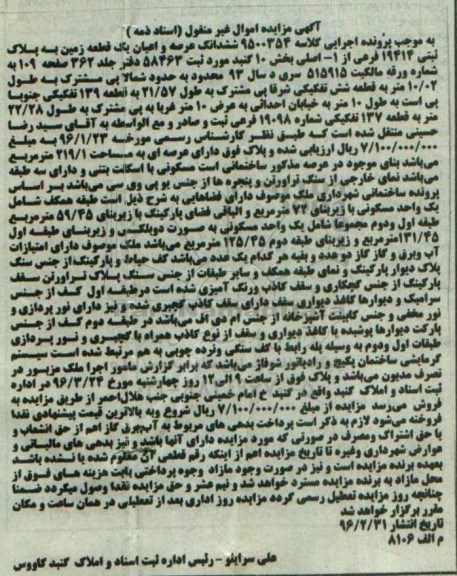 آگهی مزایده اموال غیر منقول (اسناد ذمه)
به موجب پرونده اجرایی کلاسه 9500354 ششدانگ عرصه و اعیان یک قطعه زمین به پلاک
ثبتی 19414 فرعی از 1- اصلی بخش 10 گنبد مورد ثبت 58463 دفتر جلد 362 صفحه 109 به
شماره ورقه مالکیت 515915 سری د سال 93 محدود به حدود شمالا پی مشترک به طول
10/02 متر به قطعه شش تفکیکی شرقا پی مشترک به طول 21/57 به قطعه 139 تفکیکی جنوبا
پی است به طول 10 متر به خیابان احداثی به عرض 10 متر غربا به پی مشترک به طول 22/28
متر به قطعه 137 تفکیکی شماره 19098 فرعی ثبت و صادر و مع الواسطه به آقای سید رضا
حسینی منتقل شده است که طبق نظر کارشناس رسمی مورخه 96/1/23 به مبلغ
7/100/000/000 ریال ارزیابی شده و پلاک فوق دارای عرصه ای به مساحت 219/1 مترمربع
می‌باشد بنای موجود در عرصه مذکور ساختمانی است مسکونی با اسکلت بتنی و دارای سه طبقه
می‌باشد نمای خارجی از سنگ تراورتن و پنجره ها از جنس یو پی وی سی می‌باشد بر اساس
پرونده ساختمانی شهرداری ملک موصوف دارای فضاهایی به شرح ذیل است طبقه همکف شامل
یک واحد مسکونی با زیربنای 72 مترمربع و الباقی فضای پارکینگ با زیربنای 59/45 مترمربع
طبقه اول ودوم مجموعا شامل یک واحد مسکونی به صورت دوبلکس و زیربنای طبقه اول
131/45 مترمربع و زیربنای طبقه دوم 125/45 مترمربع می‌باشد ملک موصوف دارای امتیازات
آب وبرق و گاز گاز دو عدد و بقیه هر کدام یک عدد می‌باشد کف حیاط و پارکینگ از جنس سنگ
پلاک دیوار پارکینگ و نمای طبقه همکف و سایر طبقات از جنس سنگ پلاک تراورتن سقف
پارکینگ از جنس گچکاری و سقف کاذب ورنگ آمیزی شده است درطبقه اول کف از جنس
سرامیک و دیوارها کاغذ دیواری سقف دارای سقف کاذب گچبری شده و نیز دارای نور پردازی و
نور مخفی و جنس کابینت آشپزخانه از جنس ام دی اف می‌باشد در طبقه دوم کف از جنس
پارکت دیوارها پوشیده با کاغذ دیواری و سقف از نوع کاذب همراه با گچبری و نور پردازی
طبقات اول ودوم به وسیله پله رابط با کف سنگی ونرده چوبی به هم مرتبط شده است سیستم
گرمایشی ساختمان پکیج و رادیاتور شوفاژ می‌باشد که برابر گزارش مامور اجرا ملک مزبور در
تصرف مدیون می‌باشد و پلاک فوق از ساعت 9 الی 12 روز چهارشنبه مورخ 96/3/24 در اداره
ثبت اسناد و املاک گنبد واقع در گنبد خ امام خمینی جنوبی جنب هلال‌احمر از طریق مزایده به
فروش می‌رسد مزایده از مبلغ 7/100/000/000 ریال شروع وبه بالاترین قیمت پیشنهادی نقدا
فروخته می‌شود لازم به ذکر است پرداخت بدهی های مربوط به آب،برق گاز اعم از حق انشعاب و
یا حق اشتراک ومصرف در صورتی که مورد مزایده دارای آنها باشد و نیز بدهی های مالیاتی و
عوارض شهرداری وغیره تا تاریخ مزایده اعم از اینکه رقم قطعی آن معلوم شده یا نشده باشد
بعهده برنده مزایده است و نیز در صورت وجود مازاد وجوه پرداختی بابت هزینه های فوق از
محل مازاد به برنده مزایده مسترد خواهد شد و نیم عشر و حق مزایده نقدا وصول میگردد ضمنا
چنانچه روز مزایده تعطیل رسمی گردد مزایده روز اداری بعد از تعطیلی در همان ساعت و مکان
مقرر برگزار خواهد شد
تاریخ انتشار 96/2/31
م الف 8106
علی سراینلو – رئیس اداره ثبت اسناد و املاک گنبد کاووس